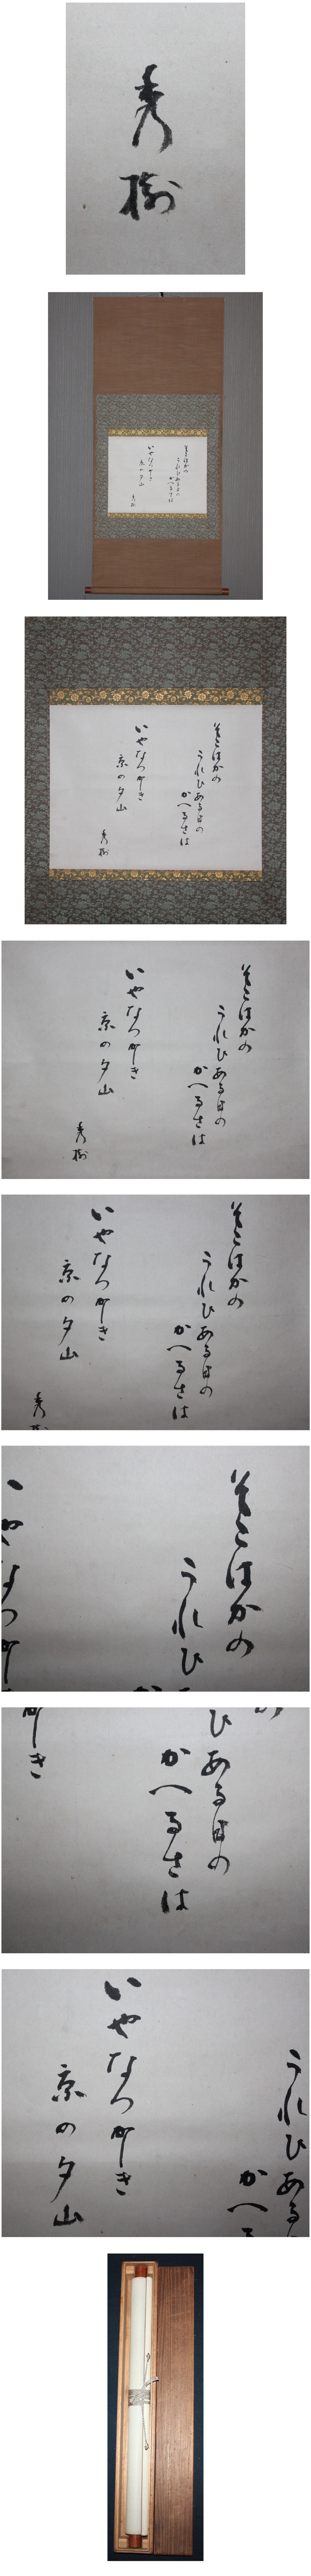 秀樹
そこはかの
うれひある日の
かへるさは
いやなつかしき
京の夕山
秀樹
そこはかの
うれひある日の
かへるさは
いやなつかしき
京の夕山
秀樹
そこはかの
うれひある日の
かへるさは
いやなつかしき
京の夕山
秀樹
そこはかの
うれひある日の
かへるさは
いやなつかしき
京の夕山
秀
そこはかの
うれひ
やなつか
ひある日の
かへるさは
しき
うれひある
かへ
いやなつかしき
京の夕山